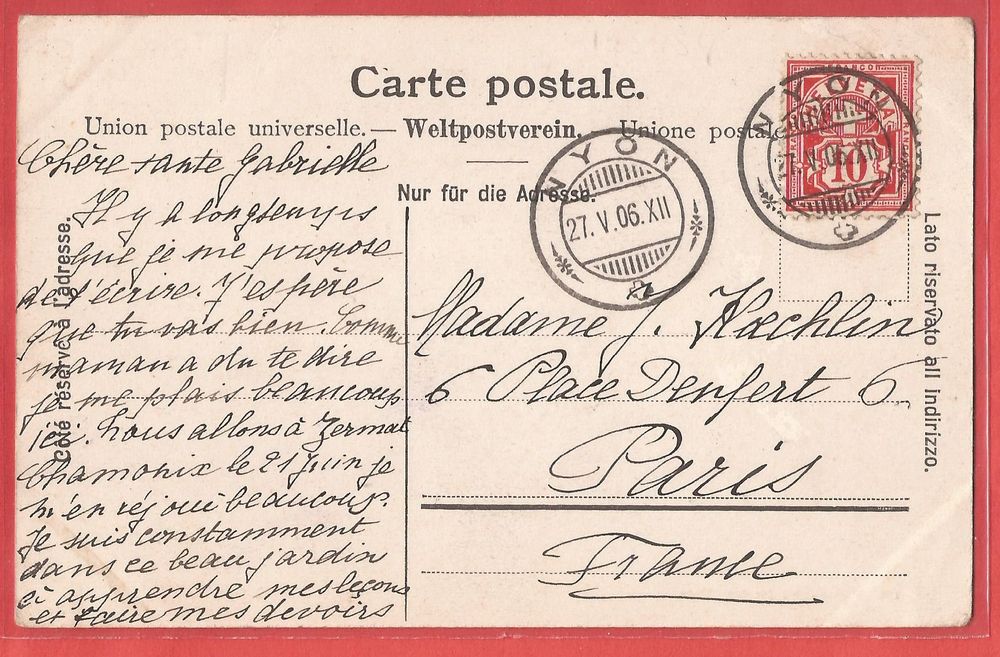 Carte postale.
Union postale universelle. — Weltpostverein. — Unione postale
Nur für die Adresse.
Côté réservé à l'adresse.
Lato riservato all indirizzo.
FRANCO
HELVETIA
10
NYON
27. V. 06. XII
NYON
27. V. 06. XII
Chère tante Gabrielle
Il y a longtemps
que je me propose
de t'écrire. J'espère
que tu vas bien. Comme
maman a du te dire
je me plais beaucoup
ici. Nous allons à Zermat
Chamonix le 21 Juin je
m'en réjoui beaucoup.
Je suis constamment
dans ce beau jardin
à apprendre mes leçons
et faire mes devoirs
Madame J. Kœchlin
6 Place Denfert 6
Paris
France